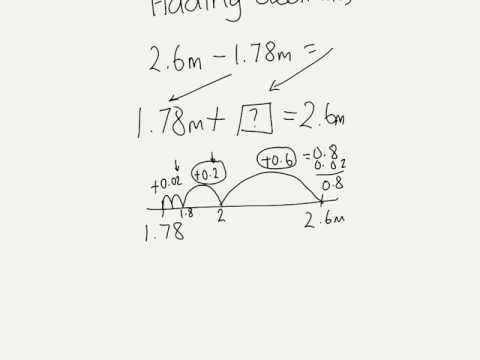 Adding decimals
2.6m - 1.78m =
1.78m + ? = 2.6m
+0.02 +0.2 +0.6 = 0.8
0.02
0.8
1.8 2
1.78 2.6m